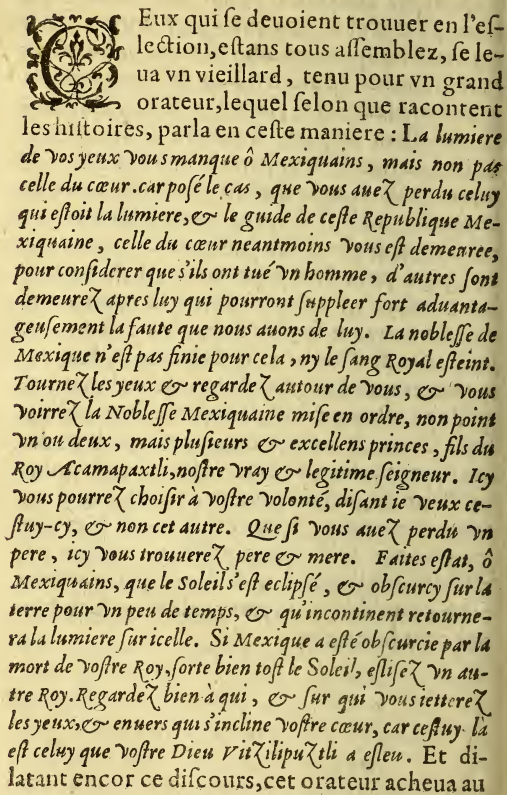 CEux qui ſe deuoient trouuer en l'eſ-
lection, eſtans tous aſſemblez, ſe le-
ua vn vieillard, tenu pour vn grand
orateur, lequel ſelon que racontent
les hiſtoires, parla en ceſte maniere : La lumiere
de vos yeux vous manque ô Mexiquains, mais non pas
celle du cœur. car poſé le cas, que vous auez perdu celuy
qui eſtoit la lumiere, & le guide de ceſte Republique Me-
xiquaine, celle du cœur neantmoins vous eſt demeuree,
pour conſiderer que s'ils ont tué vn homme, d'autres ſont
demeurez apres luy qui pourront ſuppleer fort aduanta-
geuſement la faute que nous auons de luy. La nobleſſe de
Mexique n'eſt pas finie pour cela, ny le ſang Royal eſteint.
Tournez les yeux & regardez autour de vous, & vous
voirrez la Nobleſſe Mexiquaine miſe en ordre, non point
vn ou deux, mais pluſieurs & excellens princes, fils du
Roy Acamapaxtli, noſtre vray & legitime ſeigneur. Icy
vous pourrez choiſir à voſtre volonté, diſant ie veux ce-
ſtuy-cy, & non cet autre. Que ſi vous auez perdu vn
pere, icy vous trouuerez pere & mere. Faites eſtat, ô
Mexiquains, que le Soleil s'eſt eclipſé, & obſcurcy ſur la
terre pour vn peu de temps, & qu'incontinent retourne-
ra la lumiere ſur icelle. Si Mexique a eſté obſcurcie par la
mort de voſtre Roy, ſorte bien toſt le Soleil, eſliſez vn au-
tre Roy. Regardez bien à qui, & ſur qui vous ietterez
les yeux, & enuers qui s'incline voſtre cœur, car ceſtuy là
eſt celuy que voſtre Dieu Vitziliputzli a eſleu. Et di-
latant encor ce diſcours, cet orateur acheua au